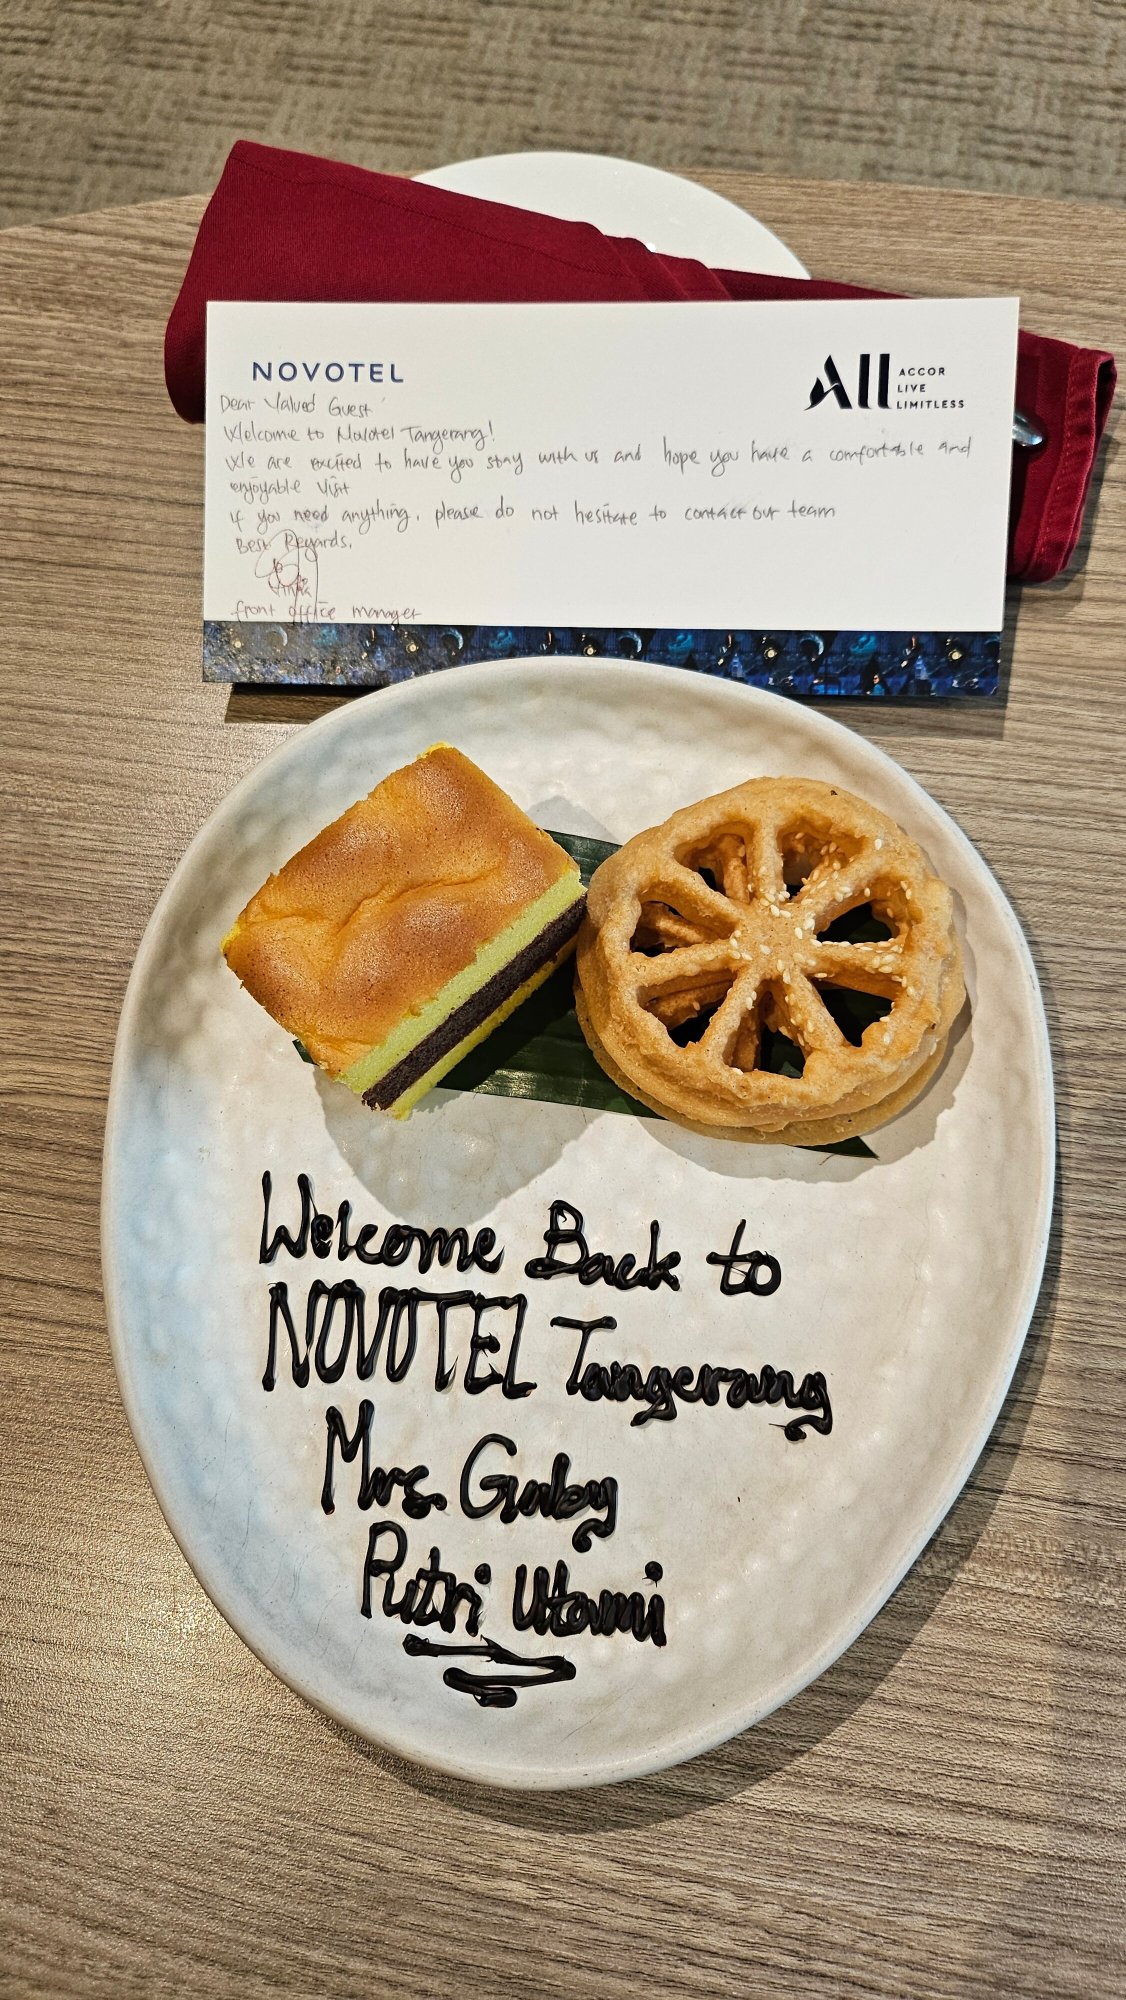 NOVOTEL
ALL ACCOR
LIVE
LIMITLESS
Dear Valued Guest
Welcome to Novotel Tangerang!
We are excited to have you stay with us and hope you have a comfortable and
enjoyable visit
If you need anything, please do not hesitate to contact our team
Best Regards,
front office manager
Welcome Back to
NOVOTEL Tangerang
Mrs. Gaby
Putri Utami